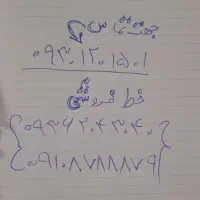 جهت تماس
۰۹۳۰۱۲۰۱۵۰۱
خط فروشی
۰۹۳۶۲۰۴۳۰۴۰
۰۹۱۰۸۷۸۸۸۷۹